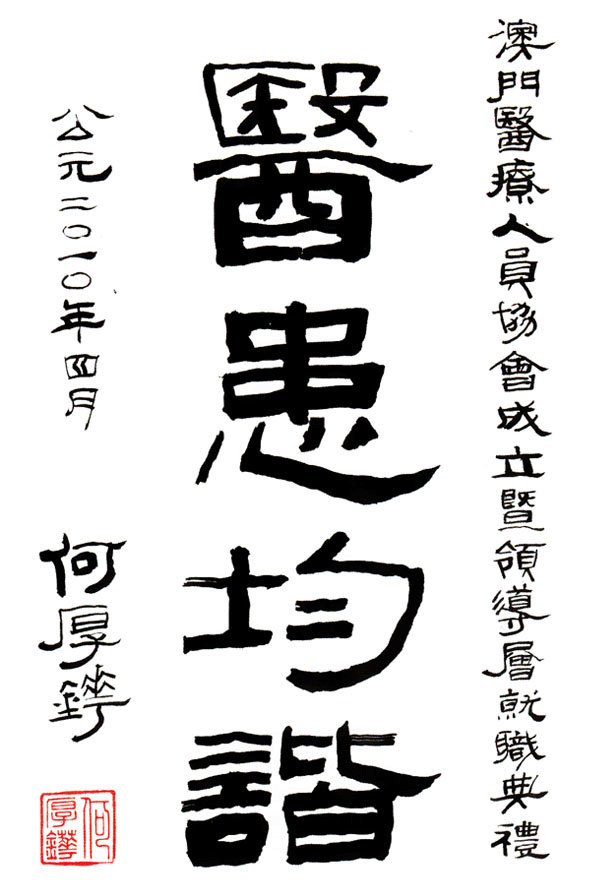 澳門醫療人員協會成立暨領導層就職典禮
醫患均諧
公元二〇一〇年四月
何厚鏵
何厚鏵